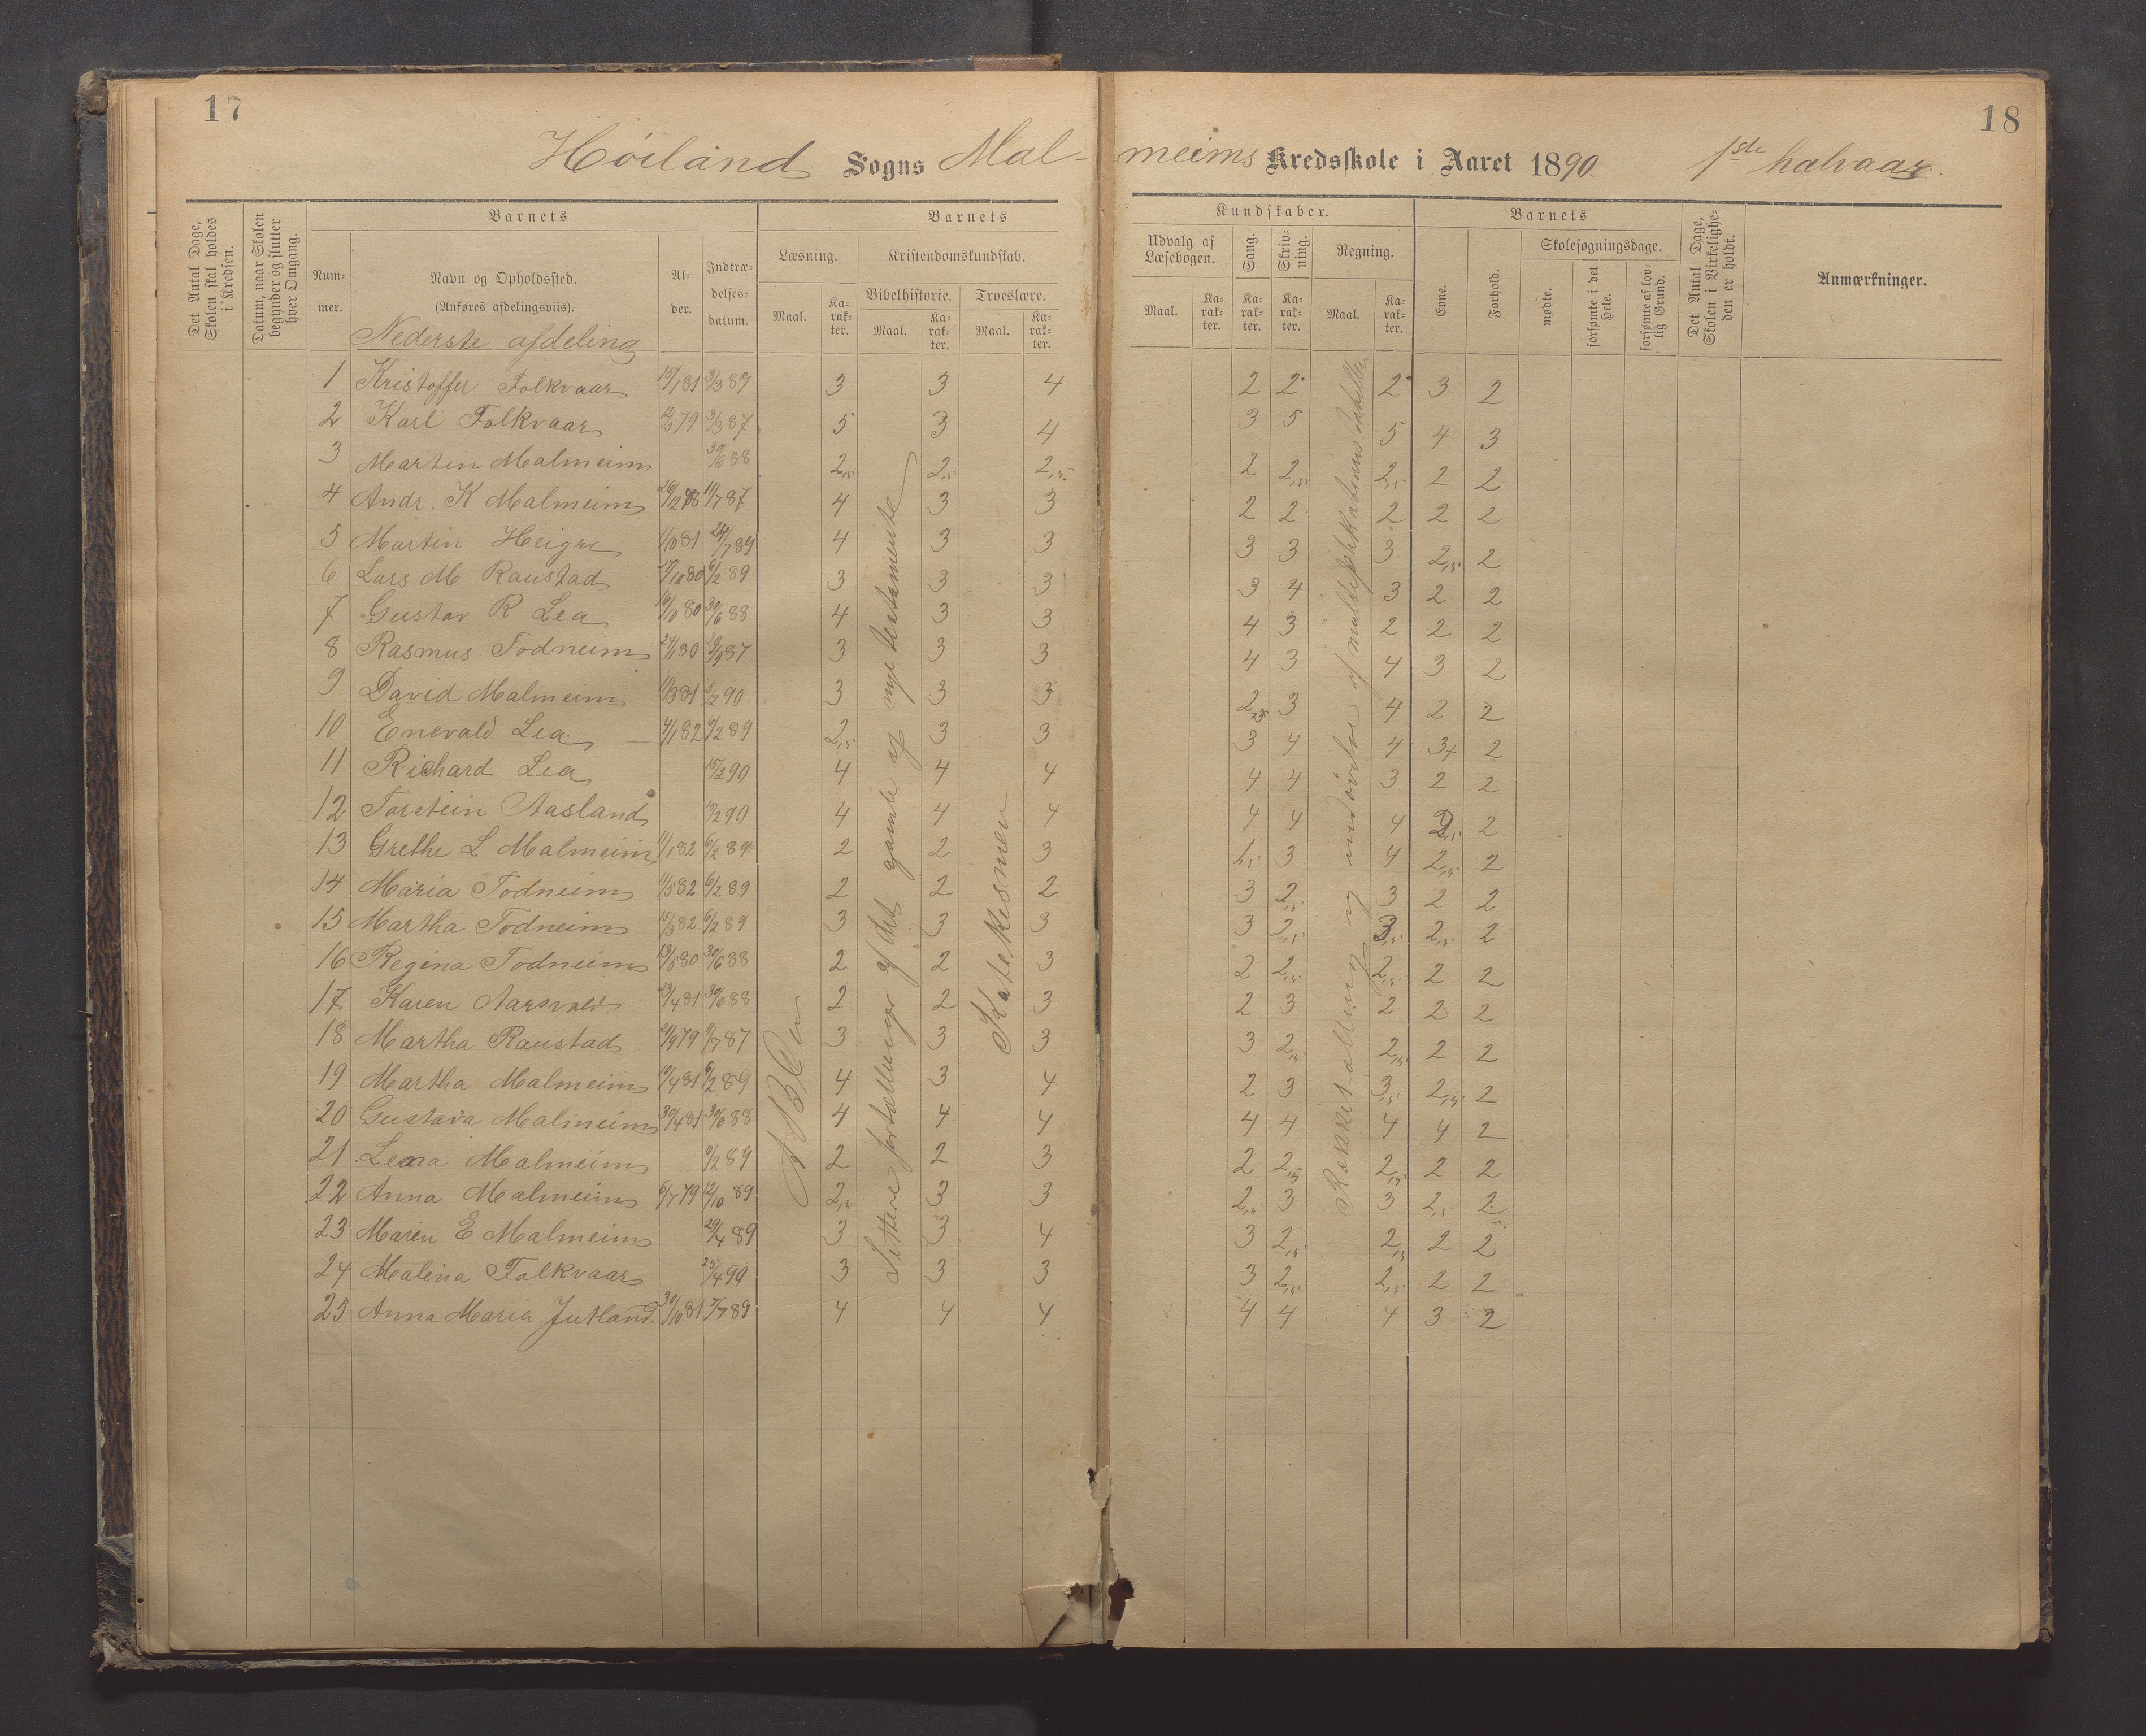 17
18
Höiland Sogns Mal-
meims Kredsskole i Aaret 1890. 1ste halvaar.
Det Antal Dage, Skolen skal holdes i Kredsen.
Datum, naar Skolen begynder og slutter hver Omgang.
Barnets
Num-
mer.
Navn og Opholdssted.
(Anføres afdelingsviis).
Al-
der.
Indtræ-
delses-
datum.
Barnets
Kundskaber.
Læsning.
Kristendomskundskab.
Maal.
Ka-
rak-
ter.
Bibelhistorie.
Troeslære.
Maal.
Ka-
rak-
ter.
Maal.
Ka-
rak-
ter.
Udvalg af
Læsebogen.
Maal.
Ka-
rak-
ter.
Sang.
Ka-
rak-
ter.
Skriv-
ning.
Ka-
rak-
ter.
Regning.
Maal.
Ka-
rak-
ter.
Barnets
Evne.
Forhold.
Skolesøgningsdage.
mødte.
forsømte i det Hele.
forsømte af lov-
lig Grund.
Det Antal Dage, Skolen i Virkelighe-
den er holdt.
Anmærkninger.
Nederste afdeling
1 Kristoffer Folkvaar 15/1 81 3/3 87 3 3 4 2 2 2 3 2
2 Karl Folkvaar 79 3/3 87 5 3 4 3 5 5 4 3
3 Martin Malmeim 30/6 88 2,5 2,5 2,5 2 2,5 2,5 2 2
4 Andr. K Malmeim 26/12 78 11/7 87 4 3 3 2 2 2 2 2
5 Martin Heigre 1/10 81 24/7 89 4 3 3 3 3 3 2,5 2
6 Lars M Raustad 27/10 80 6/2 89 3 3 3 3 4 3 2 2
7 Gustav R Lea 19/10 80 30/6 88 4 3 3 4 3 2 2 2
8 Rasmus Todneim 24/1 80 29/9 87 3 3 3 4 3 4 3 2
9 David Malmeim 11/3 81 5/2 90 3 3 3 2,25 3 4 2 2
10 Enevald Lea 4/1 82 6/2 89 2,5 3 3 3 4 4 3+ 2
11 Richard Lea 15/2 90 4 4 4 4 4 3 2 2
12 Torstein Aasland 13/2 90 4 4 4 4 4 4 2,5 2
13 Grethe L Malmeim 11/1 82 6/2 89 2 2 3 1,5 3 4 2,5 2
14 Maria Todneim 11/5 82 6/2 89 2 2 2 3 2,5 3 2 2
15 Martha Todneim 15/3 82 6/2 89 3 3 3 3 2,5 3,5 2,5 2
16 Regina Todneim 13/5 80 30/6 88 2 2 3 2 2,5 2,5 2 2
17 Karen Aarsvold 23/4 81 30/6 88 2 2 3 2 3 2 2 2
18 Martha Raustad 21/9 79 11/7 87 3 3 3 3 2,5 2,5 2 2
19 Martha Malmeim 10/4 81 6/2 89 4 3 4 2 3 3,5 2,5 2
20 Gustava Malmeim 30/4 81 30/6 88 4 4 4 4 4 4 4 2
21 Lena Malmeim 6/2 89 2 2 3 2 2,5 2,5 2 2
22 Anna Malmeim 6/7 79 12/10 89 2,5 3 3 2,5 3 3 2,5 2
23 Maren E Malmeim 29/4 89 3 3 4 3 2,5 2,5 2 2
24 Malena Folkvaar 25/4 99 3 3 3 3 2,5 2,5 2 2
25 Anna Maria Jutland 30/10 81 5/7 89 4 4 4 4 4 4 3 2
ABCen
Lettere fortællinger af det gamle og nye testamente
Katekismen
Rækketælling og indøvelse af multiplikationstabellen